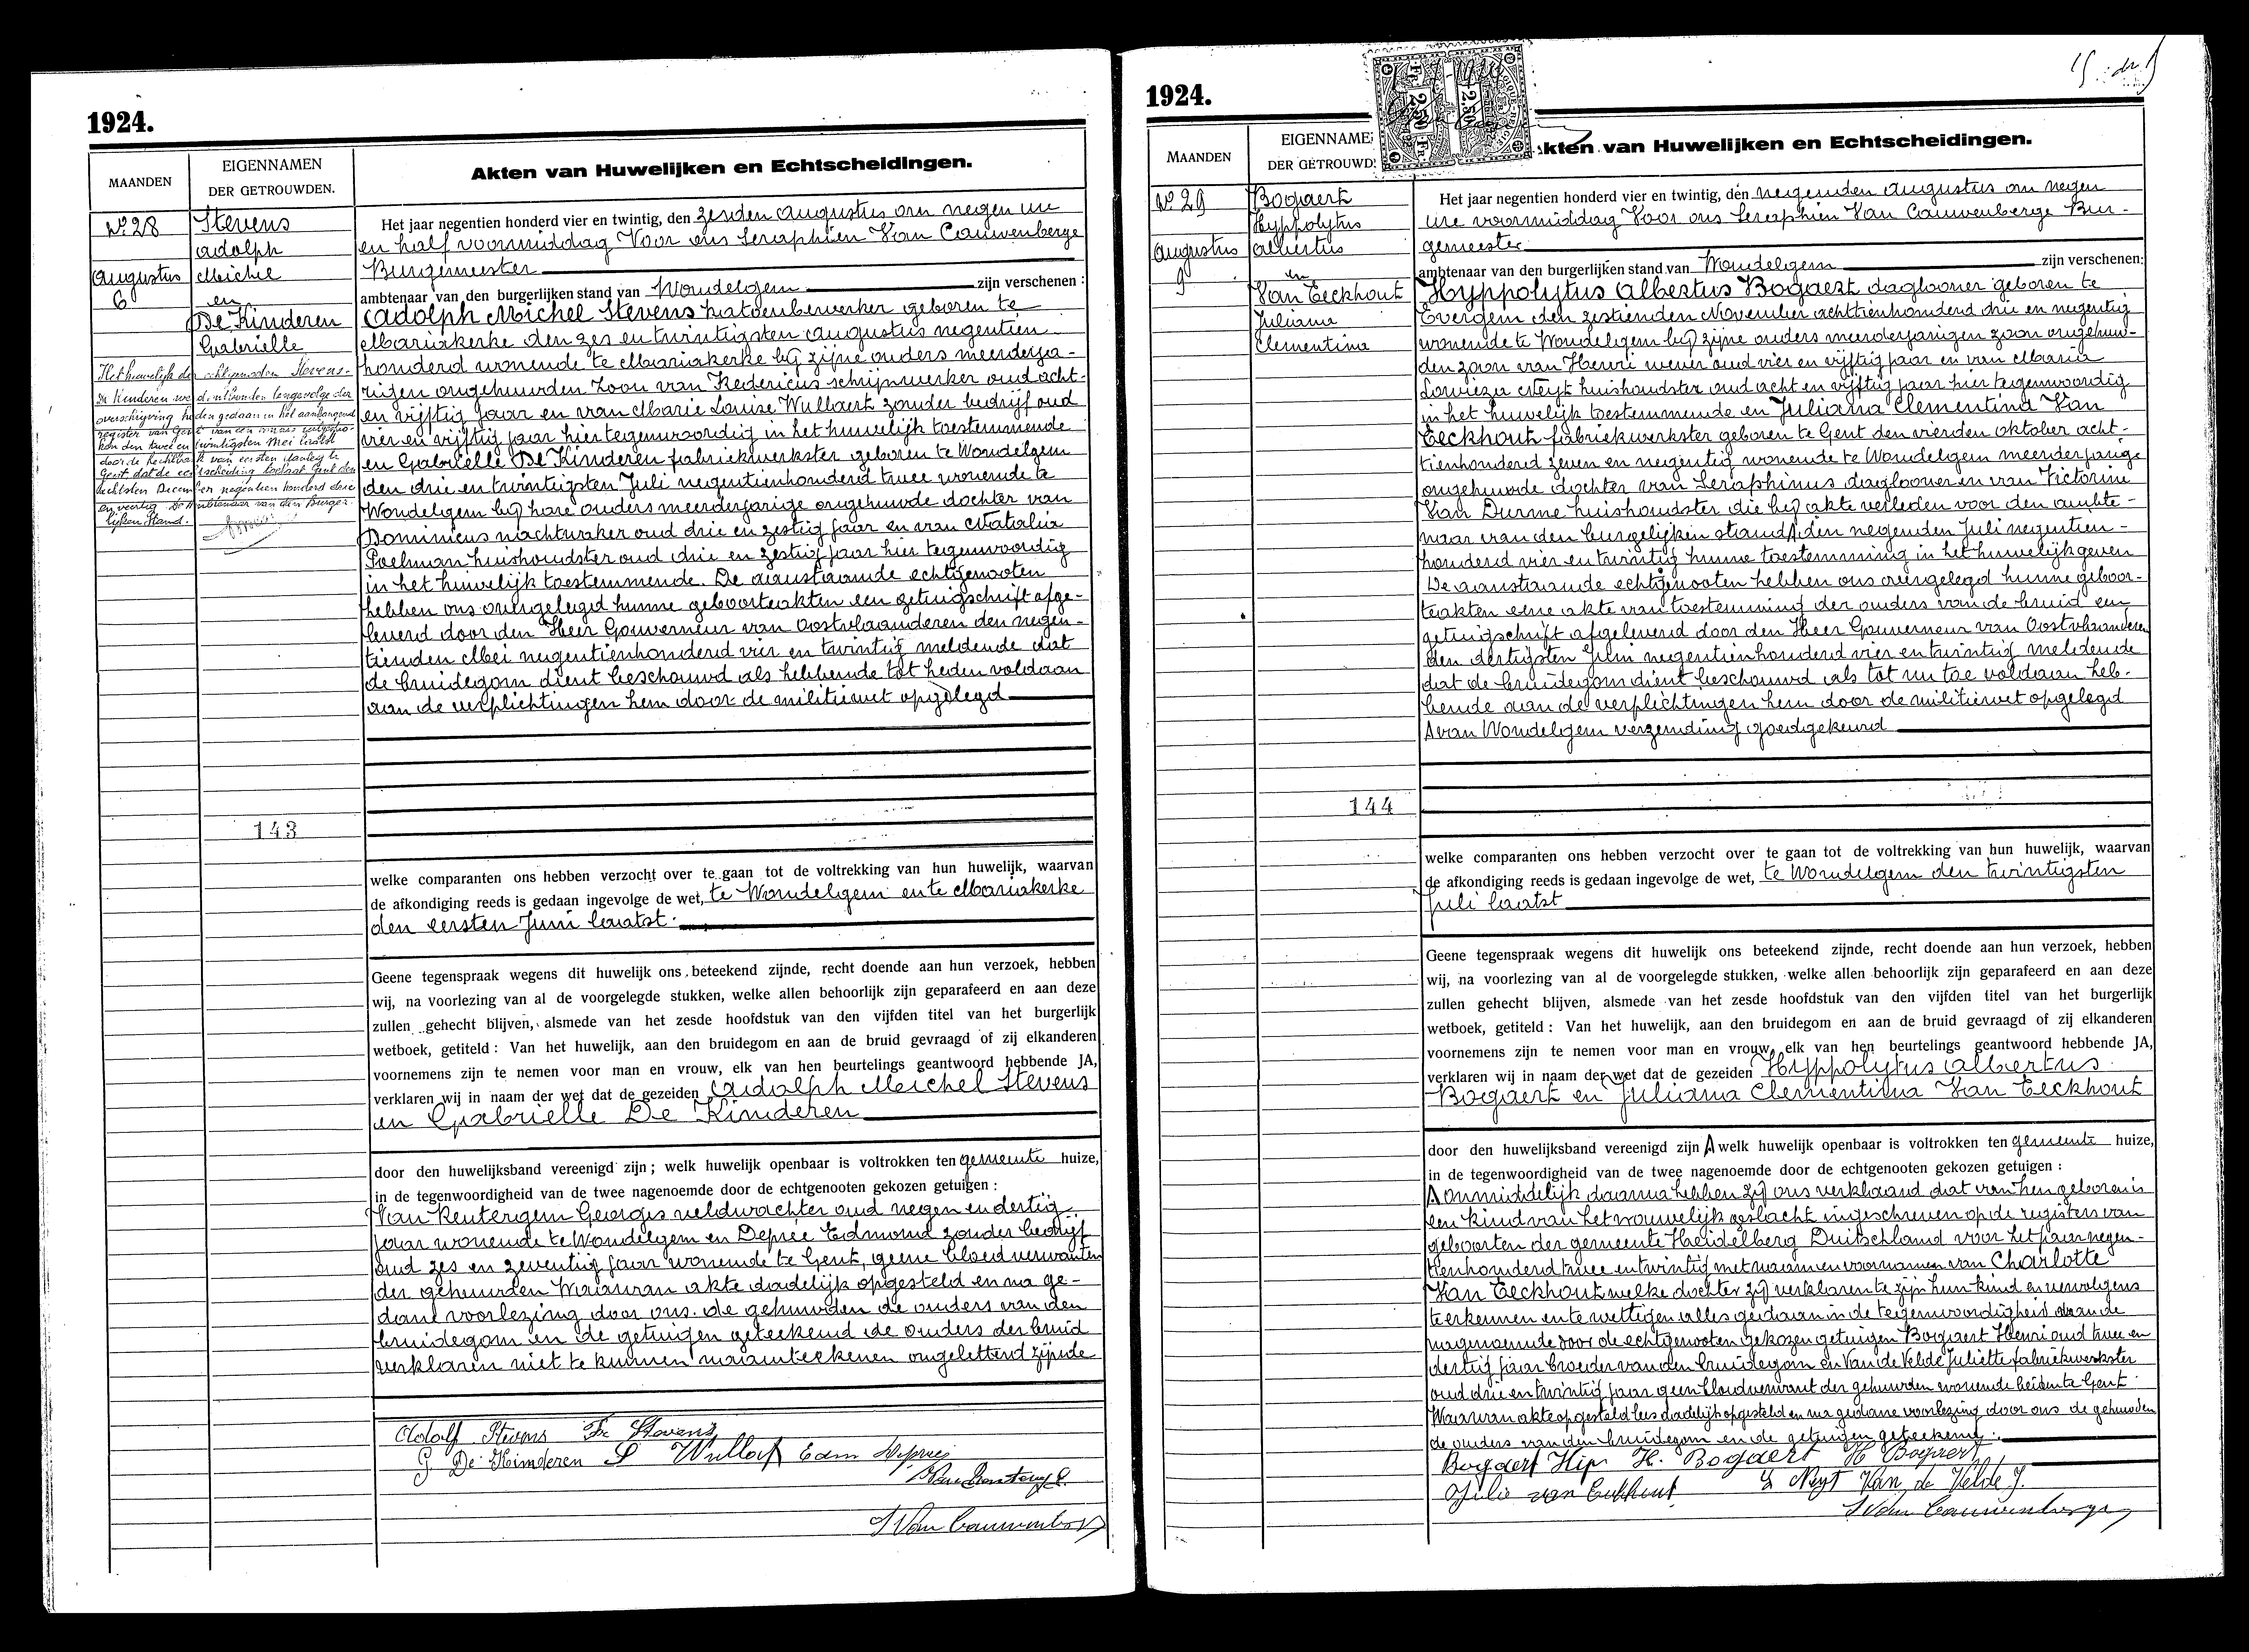 1924.
MAANDEN
EIGENNAMEN
DER GETROUWDEN.
Akten van Huwelijken en Echtscheidingen.
No. 28
Augustus
6
Stevens
Adolph
Michel
en
De Kinderen
Gabrielle
Het huwelijk der echtgenoten Stevens-
De Kinderen werd ontbonden tengevolge der
overschrijving heden gedaan in het aanhangend
register van Gent van een vonnis uitgespro-
ken den twee en twintigsten Mei laatst
door de Rechtbank van eersten aanleg te
Gent dat de echtscheiding toelaat Gent den
zechtsten December negentien honderd drie
en veertig De Ambtenaar van den Burger-
lijken Stand.
Het jaar negentien honderd vier en twintig, den zesden Augustus om negen ure
en half voormiddag Voor ons Seraphien Van Cauwenberge
Burgemeester
ambtenaar van den burgerlijken stand van Wondelgem zijn verschenen :
Adolph Michel Stevens katoenbewerker geboren te
Mariakerke den zes en twintigsten Augustus negentien
honderd wonende te Mariakerke bij zijne ouders meerderja-
rigen ongehuwden zoon van Fredericus schrijnwerker oud acht-
en vijftig jaar en van Marie Louise Wullaert zonder bedrijf oud
vier en vijftig jaar hier tegenwoordig in het huwelijk toestemmende
en Gabrielle De Kinderen fabriekwerkster geboren te Wondelgem
den drie en twintigsten Juli negentienhonderd twee wonende te
Wondelgem bij hare ouders meerderjarige ongehuwde dochter van
Dominicus nachtwaker oud drie en zestig jaar en van Natalia
Poelman huishoudster oud drie en zestig jaar hier tegenwoordig
in het huwelijk toestemmende. De aanstaande echtgenooten
hebben ons overgelegd hunne geboorteakten een getuigschrift afge-
leverd door den Heer Gouverneur van Oostvlaanderen den negen-
tienden Mei negentienhonderd vier en twintig meldende dat
de bruidegom dient beschouwd als hebbende tot heden voldaan
aan de verplichtingen hem door de militiewet opgelegd
143
welke comparanten ons hebben verzocht over te gaan tot de voltrekking van hun huwelijk, waarvan
de afkondiging reeds is gedaan ingevolge de wet, te Wondelgem en te Mariakerke
den eersten Juni laatst.
Geene tegenspraak wegens dit huwelijk ons beteekend zijnde, recht doende aan hun verzoek, hebben
wij, na voorlezing van al de voorgelegde stukken, welke allen behoorlijk zijn geparafeerd en aan deze
zullen gehecht blijven, alsmede van het zesde hoofdstuk van den vijfden titel van het burgerlijk
wetboek, getiteld : Van het huwelijk, aan den bruidegom en aan de bruid gevraagd of zij elkanderen
voornemens zijn te nemen voor man en vrouw, elk van hen beurtelings geantwoord hebbende JA,
verklaren wij in naam der wet dat de gezeiden Adolph Michel Stevens
en Gabrielle De Kinderen
door den huwelijksband vereenigd zijn ; welk huwelijk openbaar is voltrokken ten gemeente huize,
in de tegenwoordigheid van de twee nagenoemde door de echtgenooten gekozen getuigen :
Van Keuterigem Georges veldwachter oud negen en dertig
jaar wonende te Wondelgem en Deprée Edmond zonder bedrijf
oud zes en zeventig jaar wonende te Gent, geene bloedverwanten
der gehuwden Waarvan akte dadelijk opgesteld en na ge-
dane voorlezing door ons. de gehuwden de ouders van den
bruidegom en de getuigen geteekend de ouders der bruid
verklaren niet te kunnen naamteekenen ongeletterd zijnde
Adolf Stevens Fr Stevens
G De Kinderen L Wullaert Edm Deprée
S Van Cauwenberge
1924.
MAANDEN
EIGENNAME
DER GETROUWD
Akten van Huwelijken en Echtscheidingen.
No. 29
Augustus
9
Bogaert
Hyppolytus
Albertus
en
Van Eeckhout
Juliana
Clementina
Het jaar negentien honderd vier en twintig, den negenden Augustus om negen
ure voormiddag Voor ons Seraphien Van Cauwenberge Bur-
gemeester
ambtenaar van den burgerlijken stand van Wondelgem zijn verschenen:
Hyppolytus Albertus Bogaert daglooner geboren te
Evergem den zestienden November achttienhonderd drie en negentig
wonende te Wondelgem bij zijne ouders meerderjarigen zoon ongehuw-
den zoon van Henri wever oud vier en vijftig jaar en van Maria
Lowieza Neyt huishoudster oud acht en vijftig jaar hier tegenwoordig
in het huwelijk toestemmende en Juliana Clementina Van
Eeckhout fabriekwerkster geboren te Gent den vierden Oktober acht-
tienhonderd zeven en negentig wonende te Wondelgem meerderjarige
ongehuwde dochter van Seraphinus daglooner en van Victorine
Van Durme huishoudster die bij akte verleden voor den ambte-
naar van den burgelijken stand A den negenden Juli negentien-
honderd vier en twintig hunne toestemming in het huwelijk geven
De aanstaande echtgenooten hebben ons overgelegd hunne geboor-
teakten eene akte van toestemming der ouders van de bruid een
getuigschrift afgeleverd door den Heer Gouverneur van Oostvlaanderen
den dertigsten Juni negentienhonderd vier en twintig meldende
dat de bruidegom dient beschouwd als tot nu toe voldaan heb-
bende aan de verplichtingen hem door de militiewet opgelegd
A van Wondelgem verzending goedgekeurd
144
welke comparanten ons hebben verzocht over te gaan tot de voltrekking van hun huwelijk, waarvan
de afkondiging reeds is gedaan ingevolge de wet, te Wondelgem den twintigsten
Juli laatst
Geene tegenspraak wegens dit huwelijk ons beteekend zijnde, recht doende aan hun verzoek, hebben
wij, na voorlezing van al de voorgelegde stukken, welke allen behoorlijk zijn geparafeerd en aan deze
zullen gehecht blijven, alsmede van het zesde hoofdstuk van den vijfden titel van het burgerlijk
wetboek, getiteld : Van het huwelijk, aan den bruidegom en aan de bruid gevraagd of zij elkanderen
voornemens zijn te nemen voor man en vrouw, elk van hen beurtelings geantwoord hebbende JA,
verklaren wij in naam der wet dat de gezeiden Hyppolytus Albertus
Bogaert en Juliana Clementina Van Eeckhout
door den huwelijksband vereenigd zijn A welk huwelijk openbaar is voltrokken ten gemeente huize,
in de tegenwoordigheid van de twee nagenoemde door de echtgenooten gekozen getuigen :
A onmiddelijk daarna hebben zij ons verklaard dat van hen geboren is
een kind van het vrouwelijk geslacht ingeschreven op de registers van
geboorten der gemeente Heidelberg Duitschland voor het jaar negen-
tienhonderd twee en twintig met naam en voornamen van Charlotte
Van Eeckhout welke dochter zij verklaren te zijn hun kind en vervolgens
te erkennen en te wettigen alles gedaan in de tegenwoordigheid van de
nagenoemde door de echtgenooten gekozen getuigen Bogaert Henri oud twee en
dertig jaar broeder van den bruidegom en Van de Velde Juliette fabriekwerkster
oud drie en twintig jaar geen bloedverwant der gehuwden wonende beiden te Gent
Waarvan akte opgesteld lees dadelijk opgesteld en na gedane voorlezing door ons de gehuwden
de ouders van den bruidegom en de getuigen geteekend.
Bogaert Hip H. Bogaert H Bogaert
Julia van Eekhout L Neyt Van de Velde J.
S Van Cauwenberge